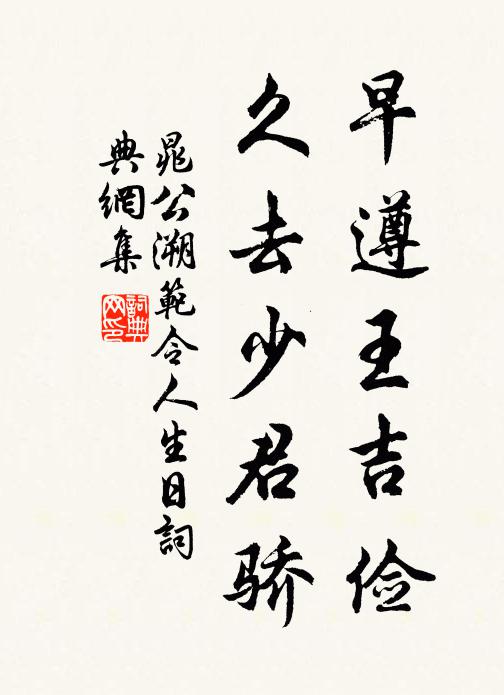 早遵王吉俭
久去少君骄
晁公溯範令人生日詞
典網集
詞典
网印